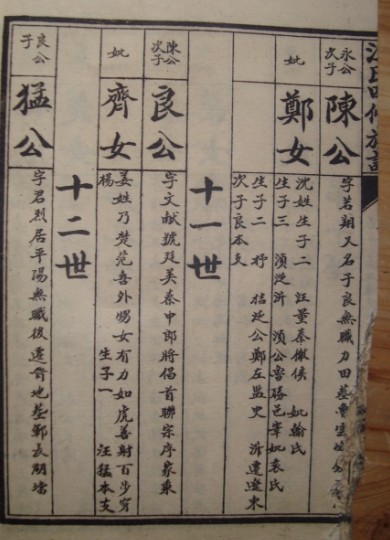 永公次子
陳公
字若翔又名子良無職力田墓
妣
鄭女
沈姓生子二
汪量秦徽侯
妣翰氏
生子三
須迄沂
須公魯勝邑宰妣袁氏
生子二
猛迄公鄭左監史
沂遷遼東
次子良本支
十一世
陳公次子
良公
字文献號廷美秦中郎將倡首聯宗序家乘
妣
齊女
姜姓乃楚
喜外甥女有力如虎善射百步穿楊
生子一
汪猛本支
十二世
良公子
猛公
字君烈居平陽無職後遷
地墓鄣長朋壋